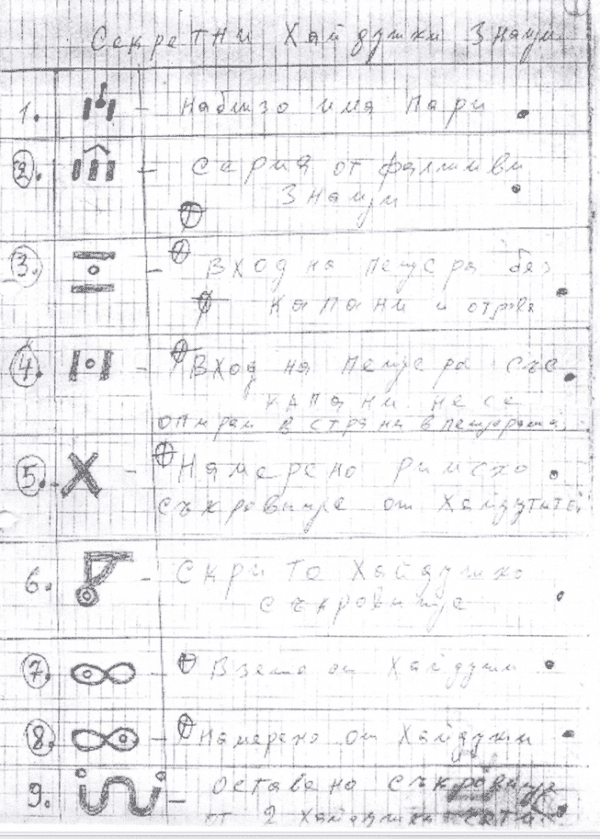 Секретни Хайдушки Знаци
1. - Наблизо има Пари
2. - Серия от фалшиви
Знаци
3. - Вход на пещера без
капани и отрова
4. - Вход на пещера със
капани не се
опирай в страна в пещерата
5. - Намерено Римско
съкровище от Хайдутите
6. - Скрито Хайдушко
съкровище
7. - Взето от Хайдути
8. - Намерено от Хайдути
9. - Оставено съкровище
от 2 Хайдушки